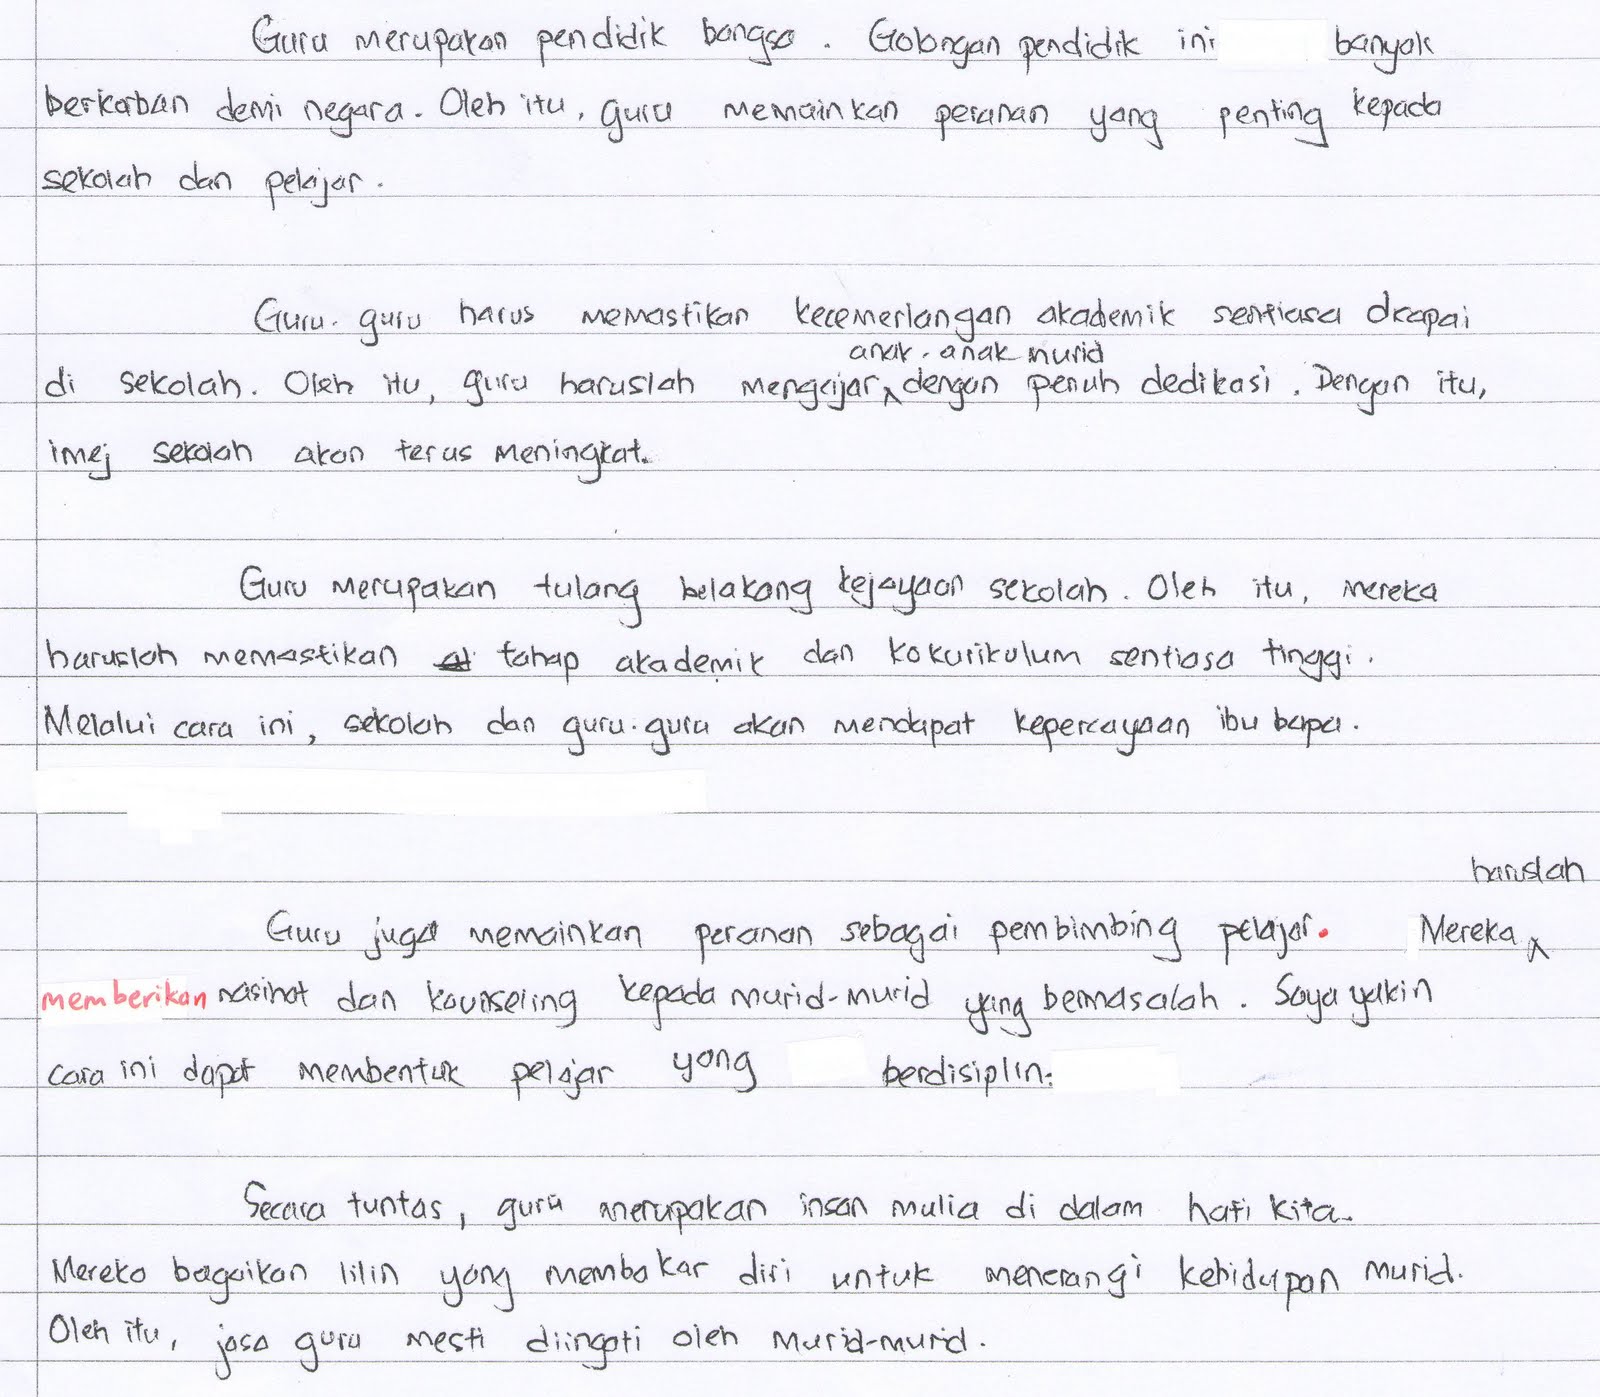 Guru merupakan pendidik bangsa. Golongan pendidik ini banyak
berkorban demi negara. Oleh itu, guru memainkan peranan yang penting kepada
sekolah dan pelajar.
Guru-guru harus memastikan kecemerlangan akademik sentiasa dicapai
anak-anak murid
di sekolah. Oleh itu, guru haruslah mengajar ^ dengan penuh dedikasi. Dengan itu,
imej sekolah akan terus meningkat.
Guru merupakan tulang belakang kejayaan sekolah. Oleh itu, mereka
haruslah memastikan tahap akademik dan kokurikulum sentiasa tinggi.
Melalui cara ini, sekolah dan guru-guru akan mendapat kepercayaan ibu bapa.
haruslah
Guru juga memainkan peranan sebagai pembimbing pelajar. Mereka ^
memberikan nasihat dan kaunseling kepada murid-murid yang bermasalah. Saya yakin
cara ini dapat membentuk pelajar yang berdisiplin.
Secara tuntas, guru merupakan insan mulia di dalam hati kita.
Mereka bagaikan lilin yang membakar diri untuk menerangi kehidupan murid.
Oleh itu, jasa guru mesti diingati oleh murid-murid.